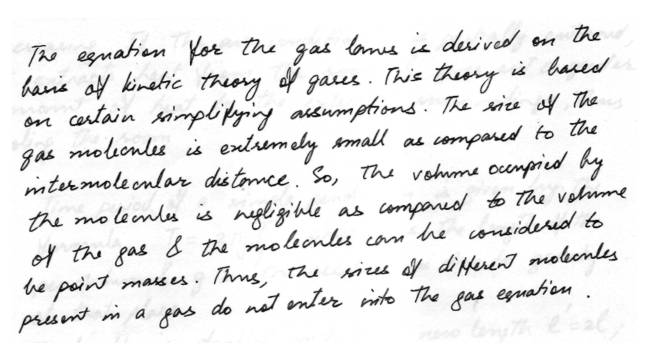 The equation for the gas laws is derived on the
basis of kinetic theory of gases. This theory is based
on certain simplifying assumptions. The size of the
gas molecules is extremely small as compared to the
intermolecular distance. So, the volume occupied by
the molecules is negligible as compared to the volume
of the gas & the molecules can be considered to
be point masses. Thus, the sizes of different molecules
present in a gas do not enter into the gas equation.
new length l'=2l;